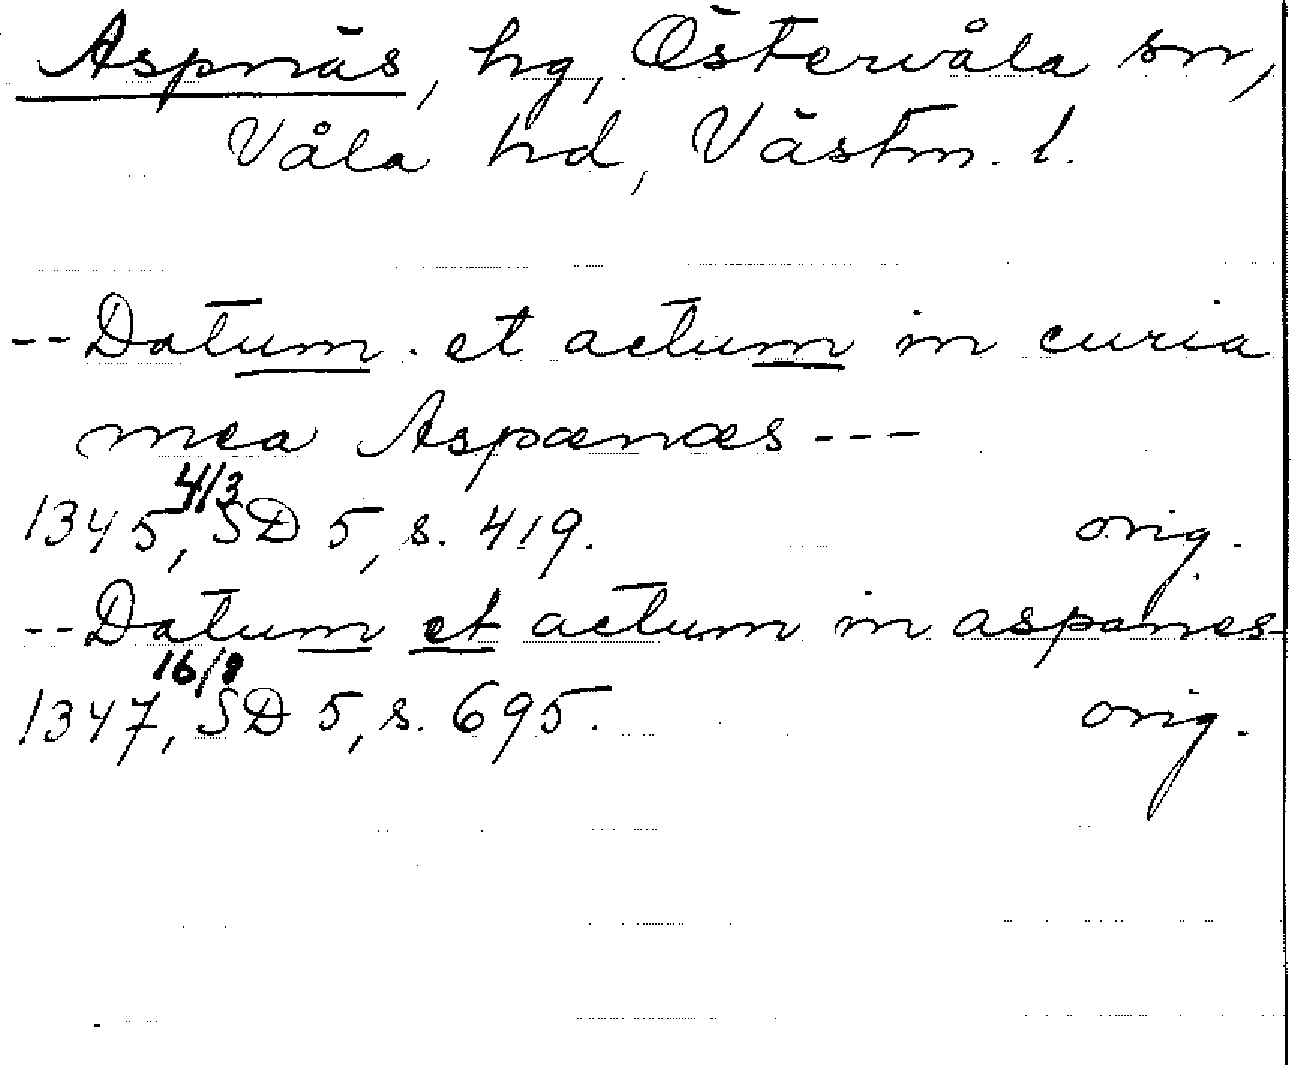 Aspnäs, hg, Östervåla sn,
Våla hd, Västm. l.
-- Datum et actum in curia
mea Aspænæs ---
1345, 4/3 SD 5, s. 419. orig.
-- Datum et actum in aspanes-
1347, 16/9 SD 5, s. 695. orig.